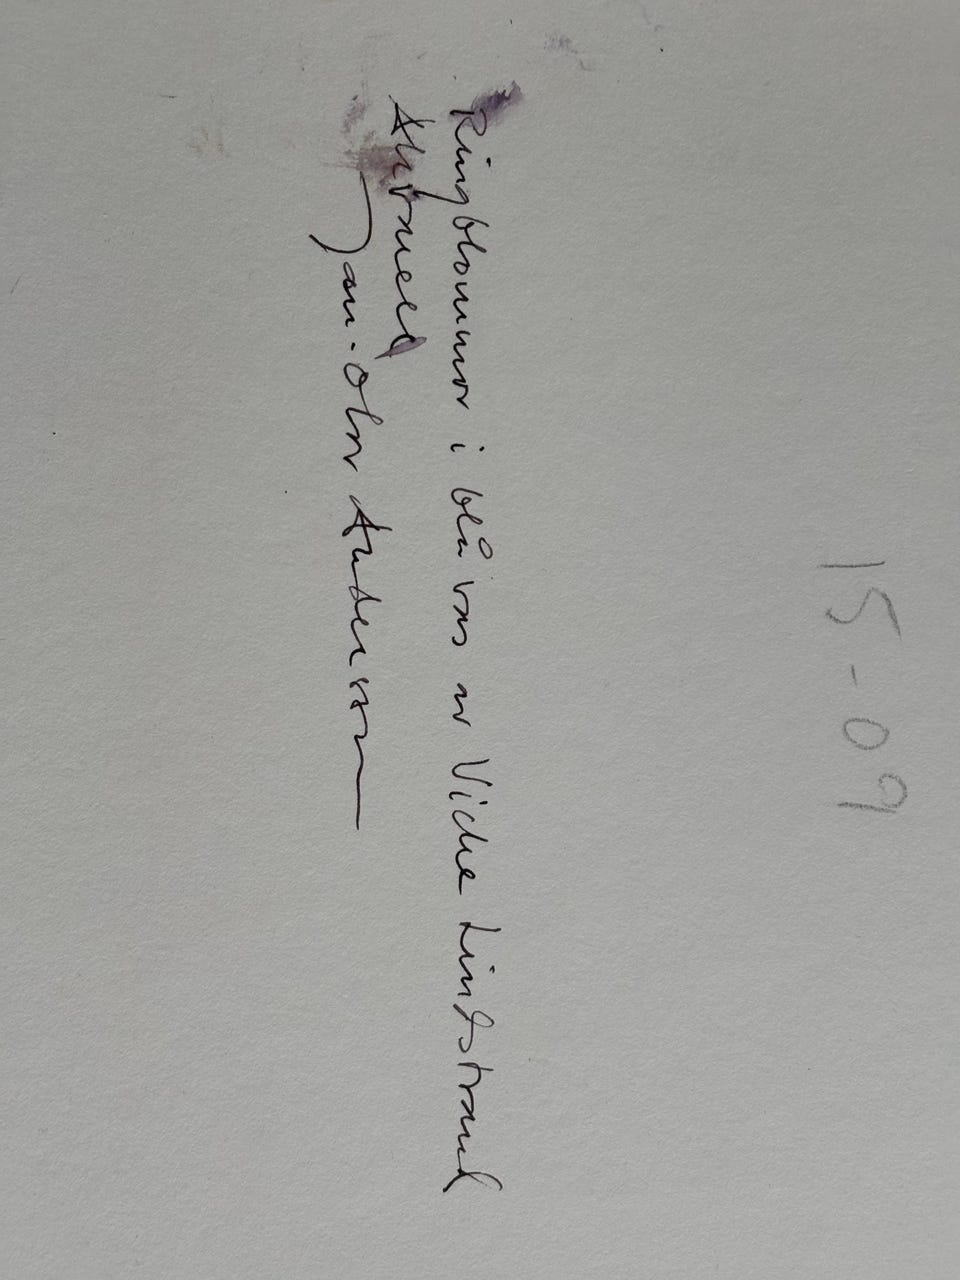 15-09
Ringblommor i blå vas av Vicke Lindstrand
Akvarell
Jan-Olov Andersson